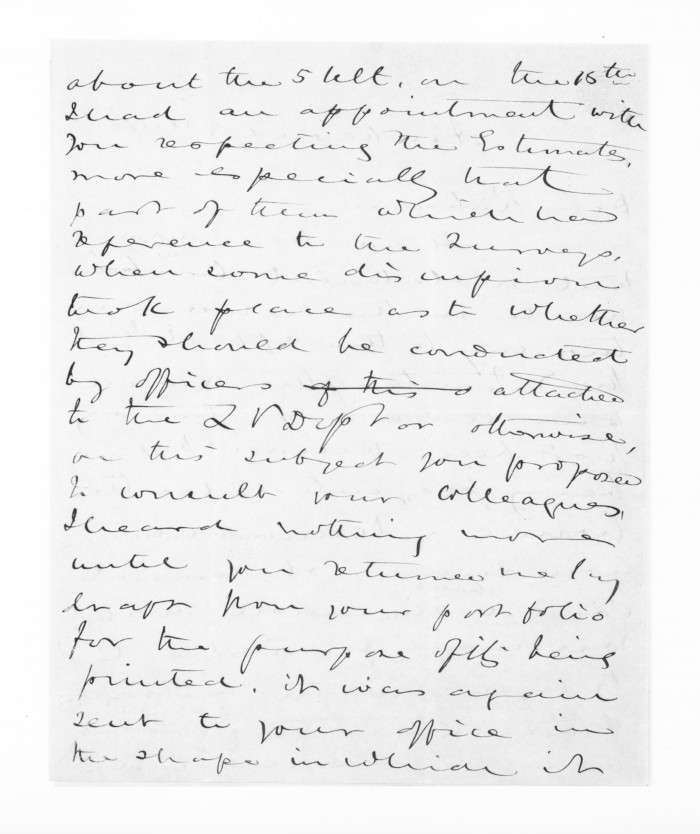 about the 5 Ult. on the 15th
I had an appointment with
you respecting the Estimates,
more especially that
part of them which had
reference to the Surveys,
when some discussion
took place as to whether
they should be conducted
by officers of this attached
to the L P Dept or otherwise,
on this subject you proposed
to consult your colleagues,
I heard nothing more
until you returned me my
draft from your portfolio
for the purpose of its being
printed. it was again
sent to your office in
the shape in which it